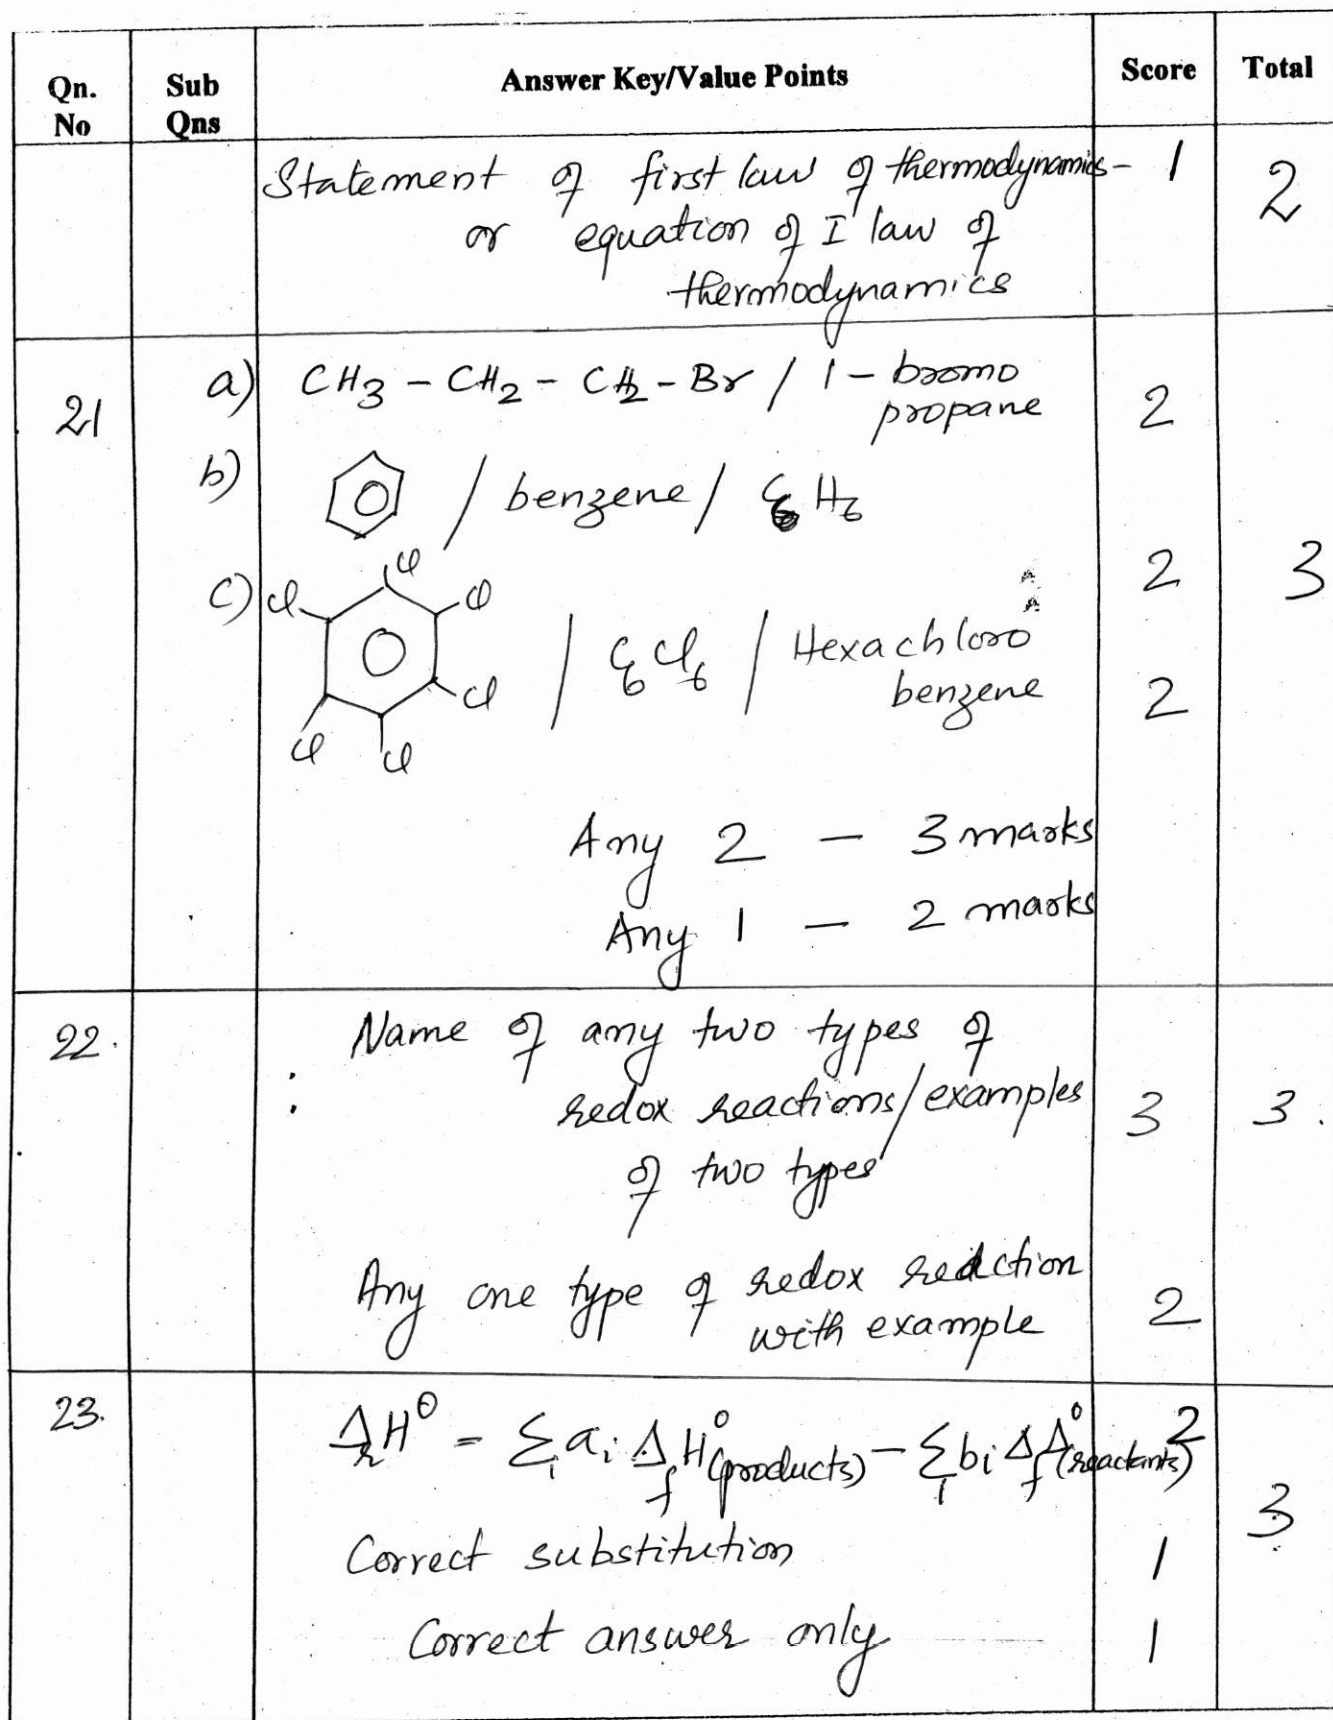 Qn. No Sub Qns Answer Key/Value Points Score Total
Statement of first law of thermodynamics - 1 2
or equation of I law of
thermodynamics
21 a) CH3 - CH2 - CH2 - Br / 1 - bromo
propane 2
b) / benzene / C6H6
2 3
c) Cl Cl Cl Cl Cl Cl / C6Cl6 / Hexachloro
benzene 2
Any 2 - 3 marks
Any 1 - 2 marks
22. Name of any two types of
redox reactions/examples 3 3.
of two types
Any one type of redox reaction
with example 2
23. ΔrH⁰ = Σi ai ΔfH⁰(products) - Σi bi ΔfΔ⁰(reactants) 2
3
Correct substitution 1
Correct answer only 1